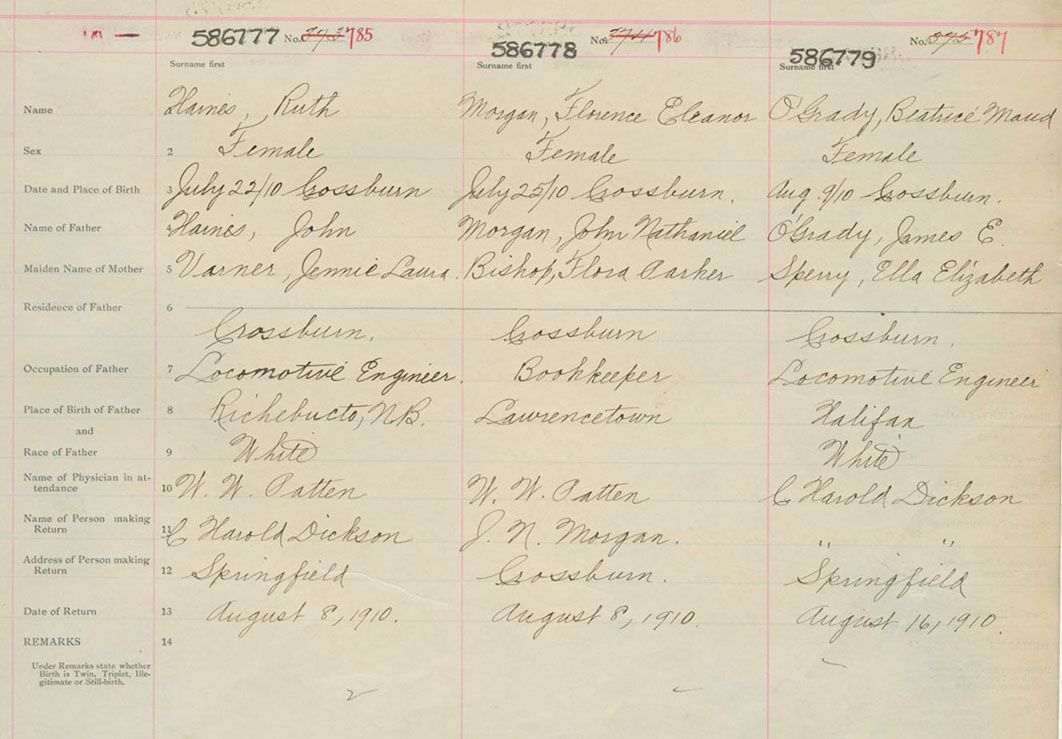 586777 No. 373 785
586778 No. 374 786
586779 No. 375 787
Surname first Surname first Surname first
Name Haines, Ruth Morgan, Florence Eleanor O'Grady, Beatrice Maud
Sex 2 Female Female Female
Date and Place of Birth 3 July 22/10 Crossburn July 25/10 Crossburn. Aug. 9/10 Crossburn.
Name of Father 4 Haines, John Morgan, John Nathaniel O'Grady, James E.
Maiden Name of Mother 5 Varner, Jennie Laura. Bishop, Flora Parker Sperry, Ella Elizabeth
Residence of Father 6
Crossburn. Crossburn Crossburn.
Occupation of Father 7 Locomotive Engineer. Bookkeeper Locomotive Engineer
Place of Birth of Father 8 Richebucto, N.B. Lawrencetown Halifax
and
Race of Father 9 White White
Name of Physician in at-
tendance 10 W. W. Patten W. W. Patten C Harold Dickson
Name of Person making
Return 11 C Harold Dickson J. N. Morgan. " "
Address of Person making
Return 12 Springfield Crossburn. Springfield
Date of Return 13 August 8, 1910. August 8, 1910. August 16, 1910.
REMARKS 14
Under Remarks state whether
Birth is Twin, Triplet, Ille-
gitimate or Still-birth.